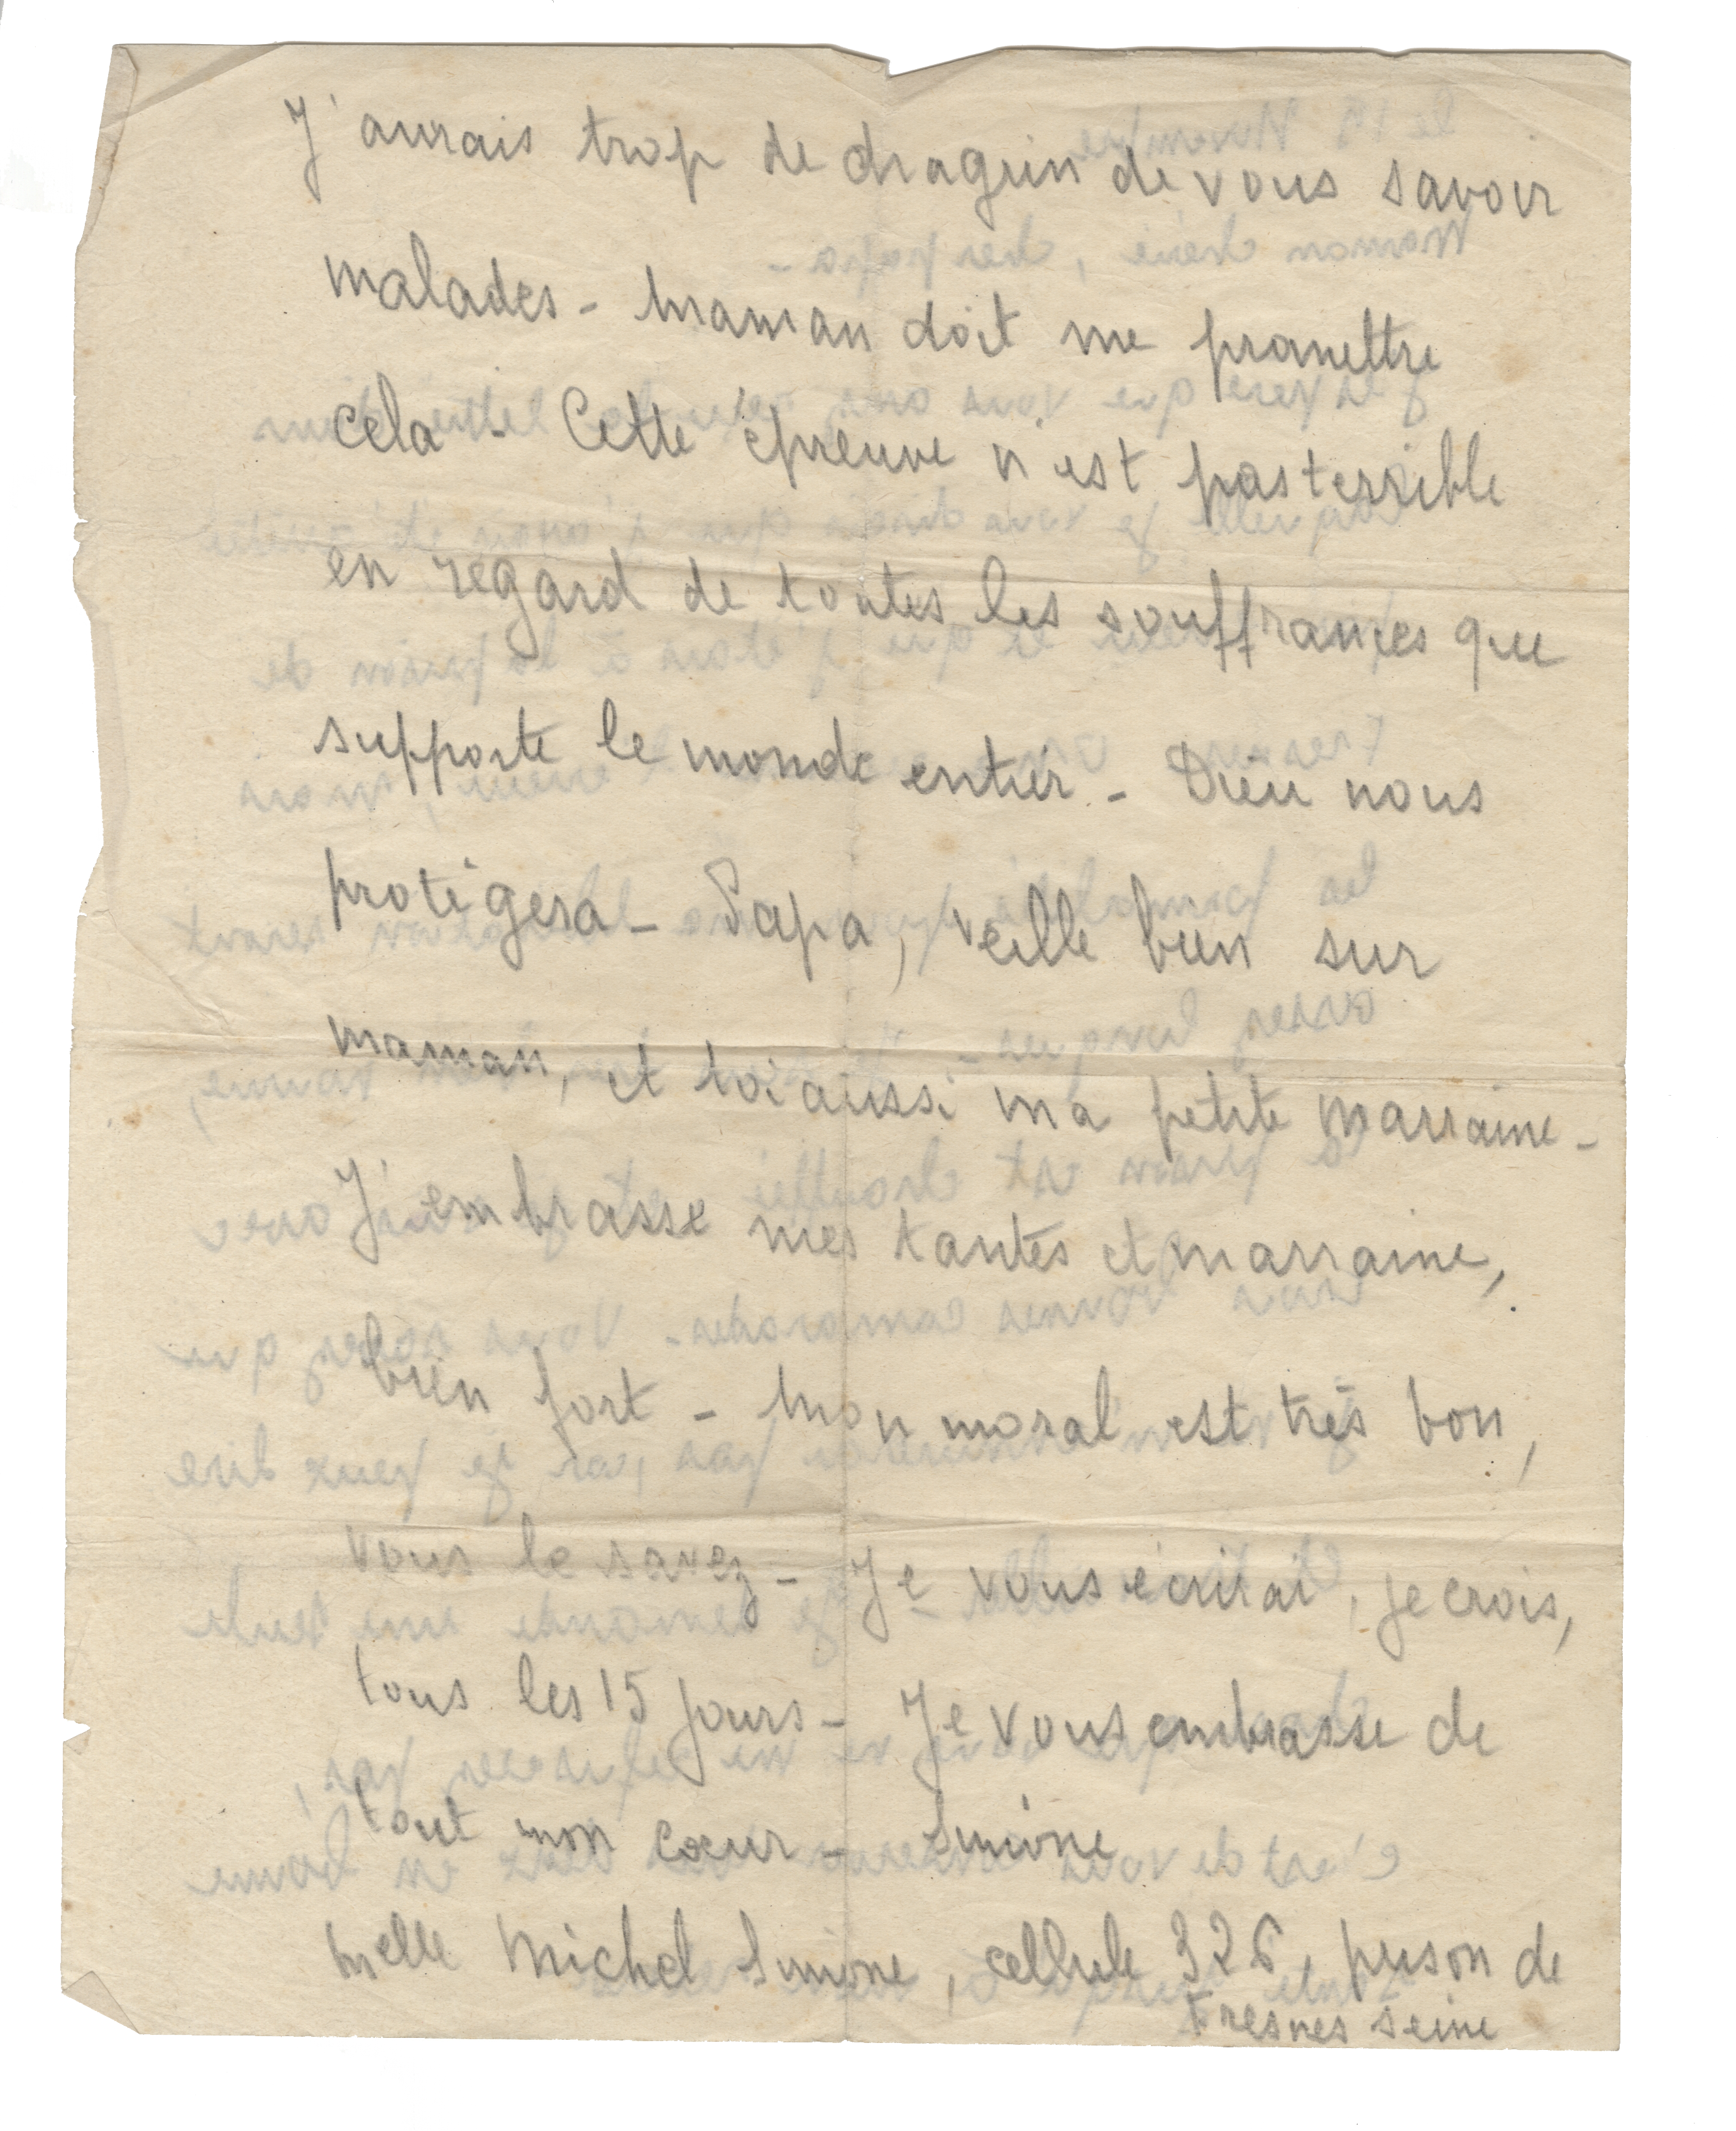 J'aurais trop de chagrin de vous savoir
malades - Maman doit me promettre
cela - Cette épreuve n'est pas terrible
en regard de toutes les souffrances que
supporte le monde entier - Dieu nous
protégera - Papa, veille bien sur
maman, et toi aussi ma petite marraine -
J'embrasse mes tantes et marraine,
bien fort - Mon moral est très bon,
vous le savez - Je vous écrirai, je crois,
tous les 15 jours - Je vous embrasse de
tout mon cœur - Simone
Melle Michel Simone, cellule 326, prison de
Fresnes Seine